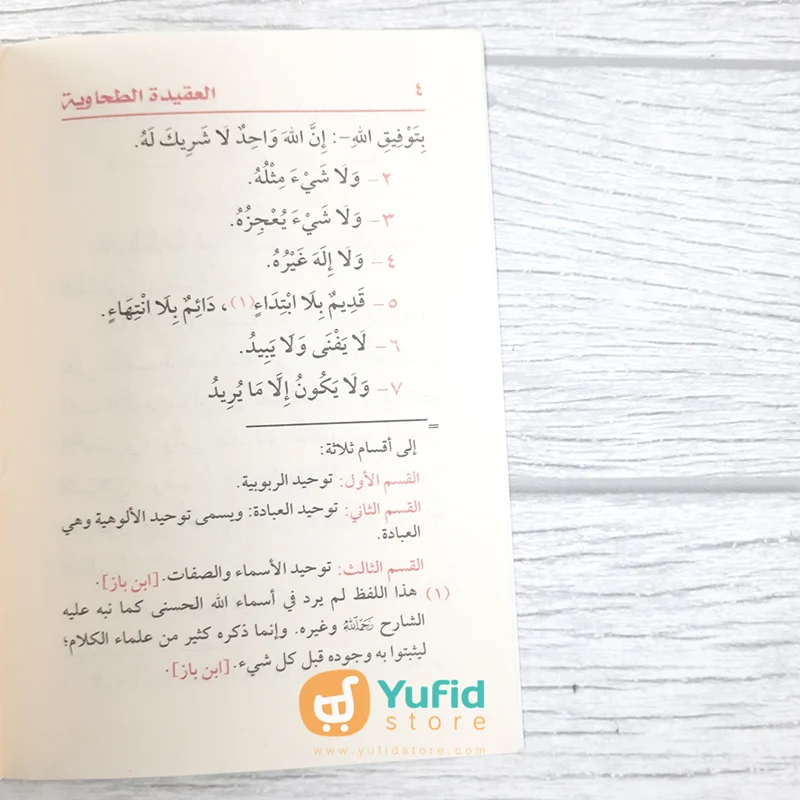 ٤ العقيدة الطحاوية
بِتَوْفِيقِ اللهِ-: إِنَّ اللهَ وَاحِدٌ لَا شَرِيكَ لَهُ.
٢- وَلَا شَيْءَ مِثْلُهُ.
٣- وَلَا شَيْءَ يُعْجِزُهُ.
٤- وَلَا إِلَهَ غَيْرُهُ.
٥- قَدِيمٌ بِلَا ابْتِدَاءٍ(١)، دَائِمٌ بِلَا انْتِهَاءٍ.
٦- لَا يَفْنَى وَلَا يَبِيدُ.
٧- وَلَا يَكُونُ إِلَّا مَا يُرِيدُ
=
إلى أقسام ثلاثة:
القسم الأول: توحيد الربوبية.
القسم الثاني: توحيد العبادة: ويسمى توحيد الألوهية وهي
العبادة.
القسم الثالث: توحيد الأسماء والصفات. [ابن باز].
(١) هذا اللفظ لم يرد في أسماء الله الحسنى كما نبه عليه
الشارح رَحِمَهُ اللهُ وغيره. وإنما ذكره كثير من علماء الكلام؛
ليثبتوا به وجوده قبل كل شيء. [ابن باز].
Yufid
store
www.yufidstore.com